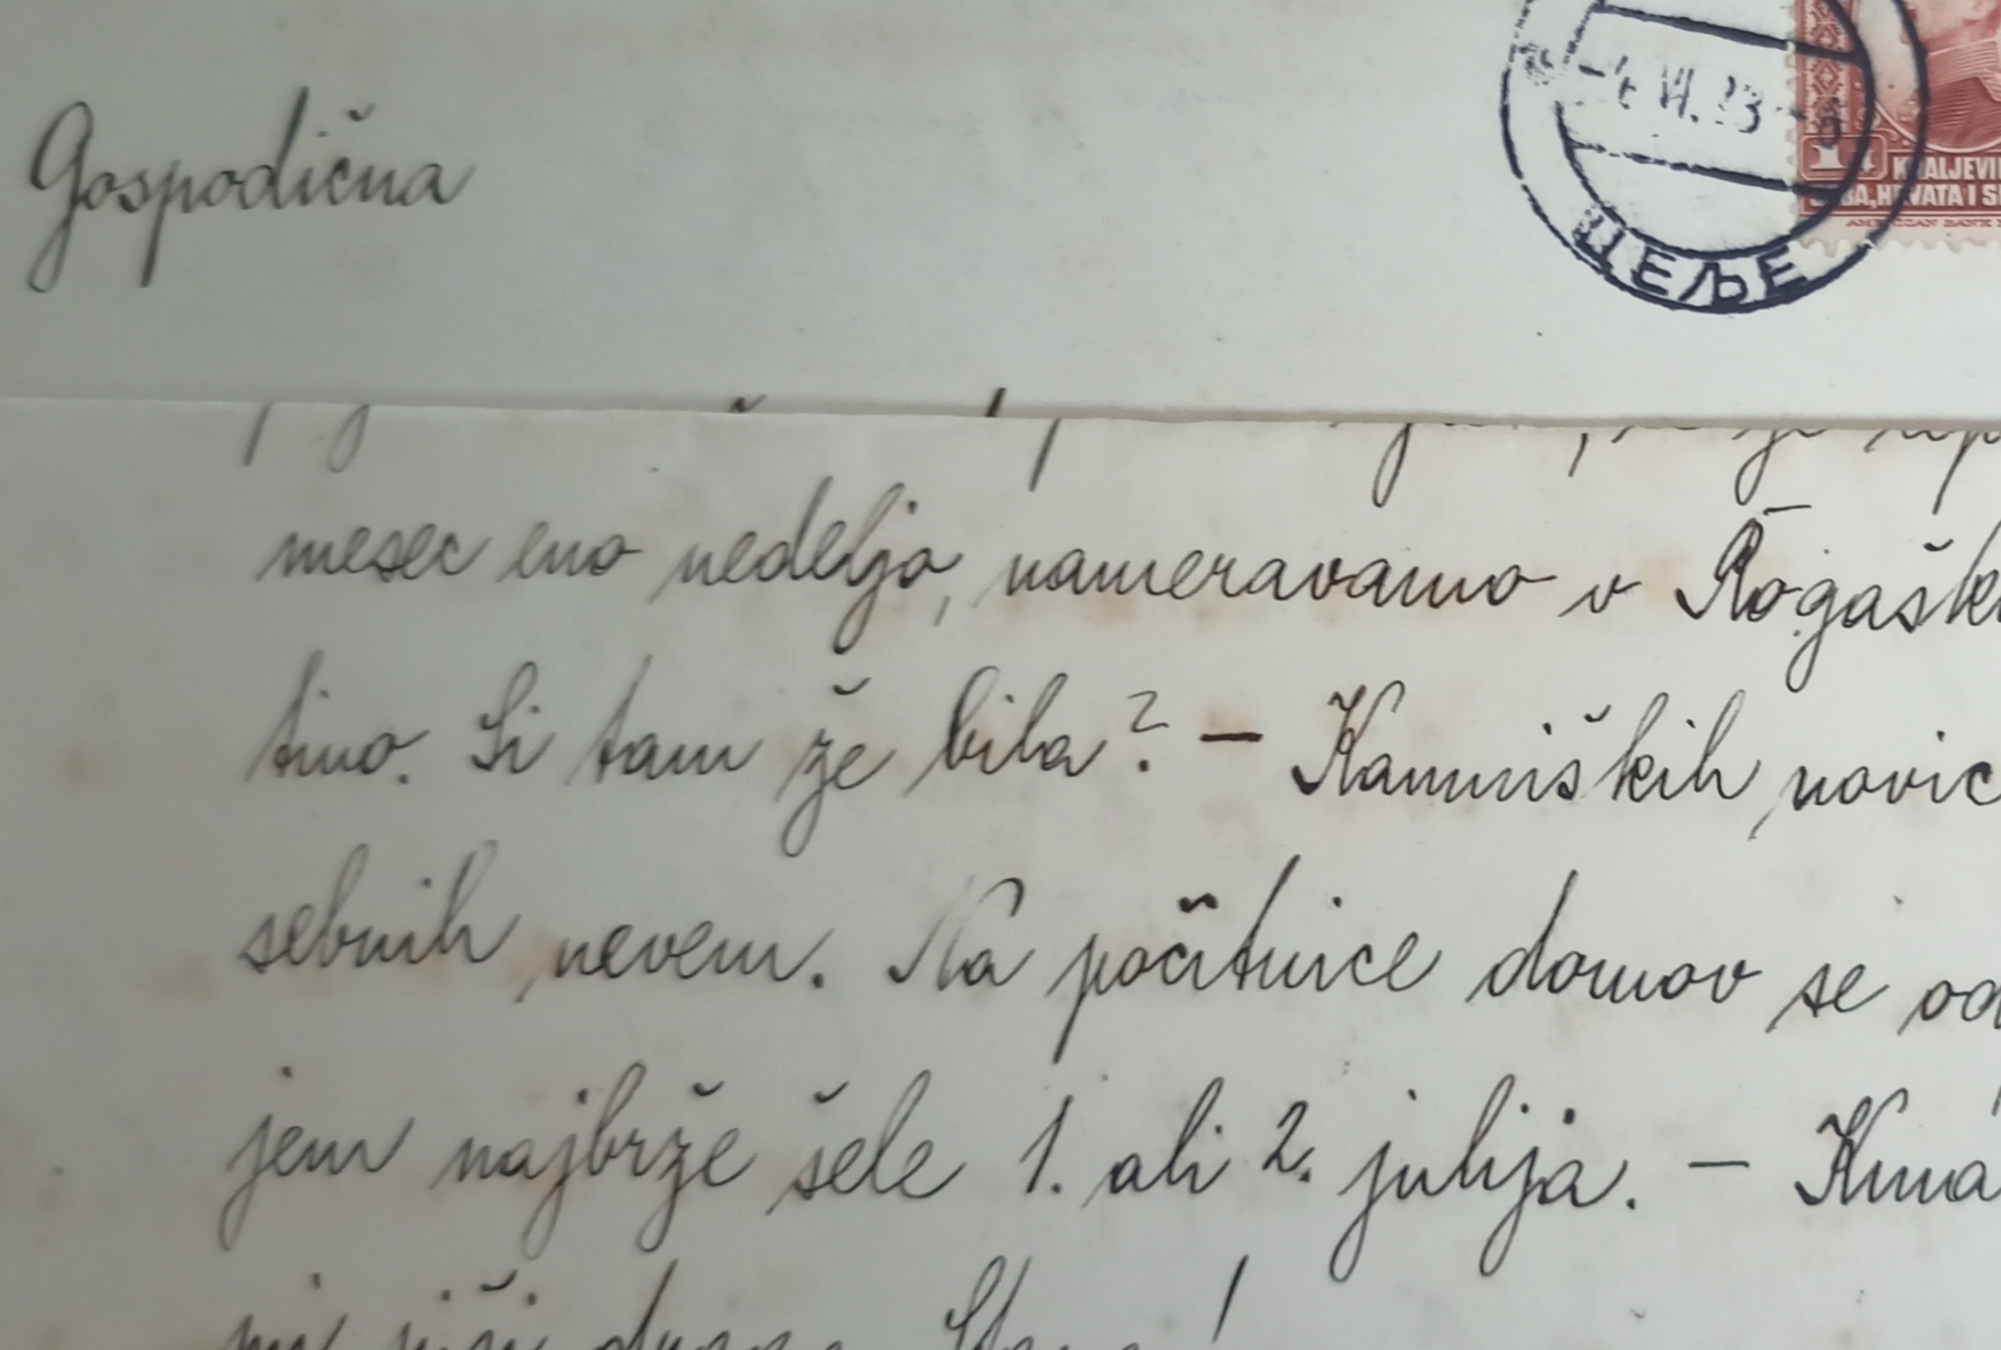 Gospodična
-4. VI. 23
ЦЕЉЕ
1
KRALJEVI
SRBA, HRVATA I S
AMERICAN BANK
mesec eno nedeljo, nameravamo v Rogašk
tino. Si tam že bila? – Kamniških novic
sebnih nevem. Na počitnice domov se od
jem najbrže šele 1. ali 2. julija. – Kma